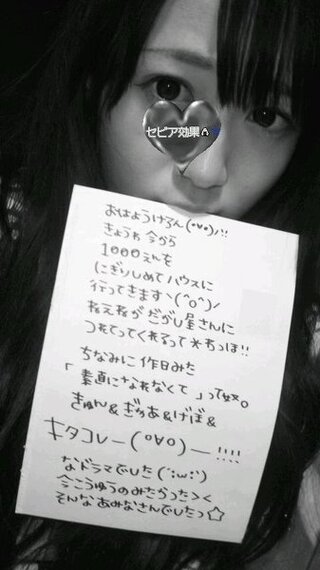 セピア効果
おはようけろん(°∀°)/!!
きょうゎ 今から
1000えんを
にぎりしめてハウスに
行ってきますヽ(^o^)ノ
ねえねがだがし屋さんに
つれてってくれるって*ちっほ!!
ちなみに作日みた
「素直になれなくて」って奴。
きゅん&ぎゅあ&げぼ&
キタコレー(°∀°)ー!!!!
なドラマでした(´;ω;`)
今こうゆうのみたかった><
そんなあみなさんでしたっ☆